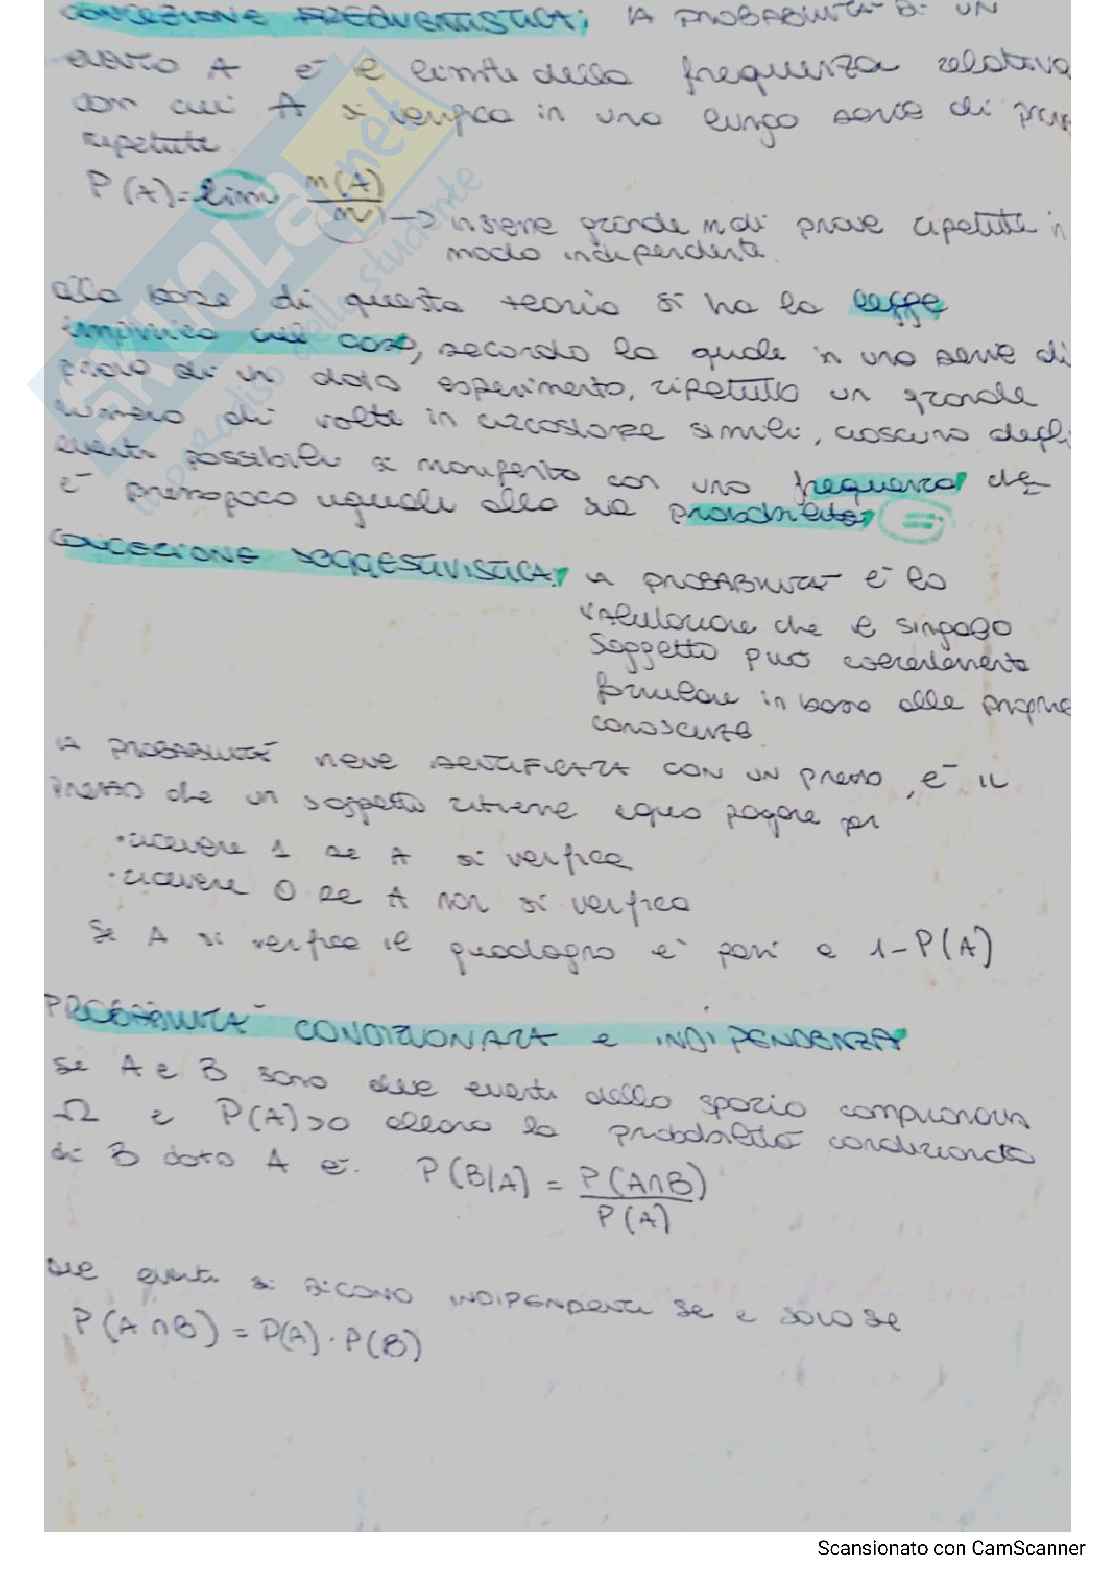 CONCEZIONE FREQUENTISTICA: LA PROBABILITÀ DI UN
evento A è il limite della frequenza relativa
con cui A si verifica in una lunga serie di prove
ripetute
P(A)=lim n(A)/n → insieme grande n di prove ripetute in
modo indipendente.
alla base di questa teoria si ha la legge
empirica del caso, secondo la quale in una serie di
prove di un dato esperimento, ripetuto un grande
numero di volte in circostanze simili, ciascuno degli
eventi possibili si manifesta con una frequenza che
è pressapoco uguale alla sua probabilità =
CONCEZIONE SOGGETTIVISTICA: LA PROBABILITÀ È la
valutazione che il singolo
soggetto può coerentemente
formulare in base alle proprie
conoscenze
LA PROBABILITÀ viene IDENTIFICATA CON UN prezzo, è IL
prezzo che un soggetto ritiene equo pagare per
• ricevere 1 se A si verifica
• ricevere 0 se A non si verifica
Se A si verifica il guadagno è pari a 1-P(A)
PROBABILITÀ CONDIZIONATA e INDIPENDENZA
se A e B sono due eventi dello spazio campionario
Ω e P(A)>0 allora la probabilità condizionata
di B dato A è: P(B|A) = P(A∩B)/P(A)
due eventi si dicono INDIPENDENTI se e solo se
P(A∩B) = P(A)·P(B)
SKUOLA.net
Scansionato con CamScanner